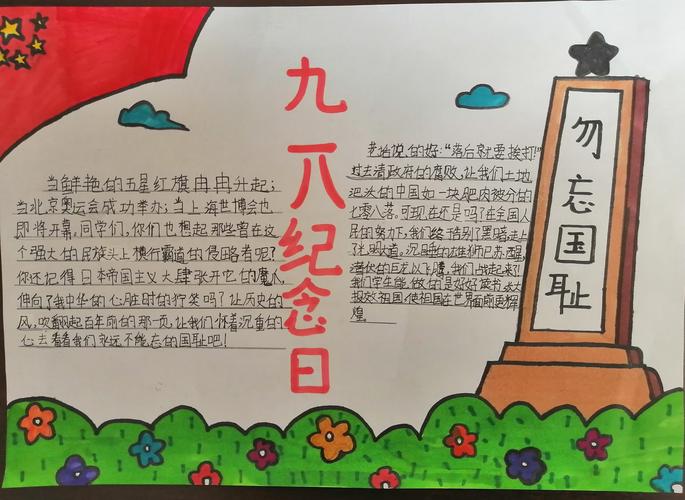 九一八纪念日
当鲜艳的五星红旗冉冉升起；
当北京奥运会成功举办；当上海世博会也
即将开幕，同学们，你们也想起那些曾在这
个强大的民族头上横行霸道的侵略者呢？
你还记得日本帝国主义大肆张开它的魔爪，
伸向了我中华的心脏时的狞笑吗？让历史的
风，吹翻起百年前的那一页，让我们怀着沉重的
心去看看我们永远不能忘的国耻吧！
老话说的好："落后就要挨打！"
过去清政府的腐败，让我们土地
肥沃的中国如一块肥肉被分的
七零八落。可现在还是吗？在全国人
民的努力下，我们终告别了黑暗走上
了光明大道。沉睡的雄狮已苏醒，
潜伏的巨龙以飞腾，我们站起来了！
我们学生能做的是好好读书，长大
报效祖国，使祖国在世界面前更辉
煌。
勿忘国耻